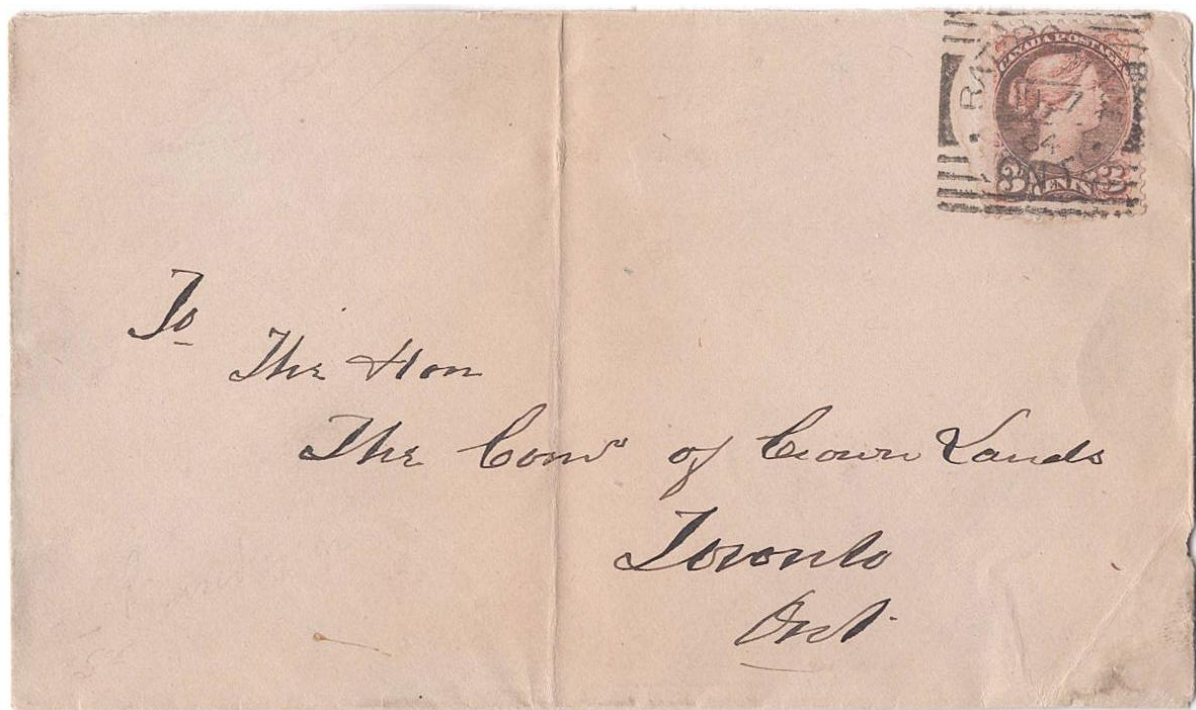 CANADA POSTAGE
3 CENTS 3
To
The Hon
The Comr of Crown Lands
Toronto
Ont